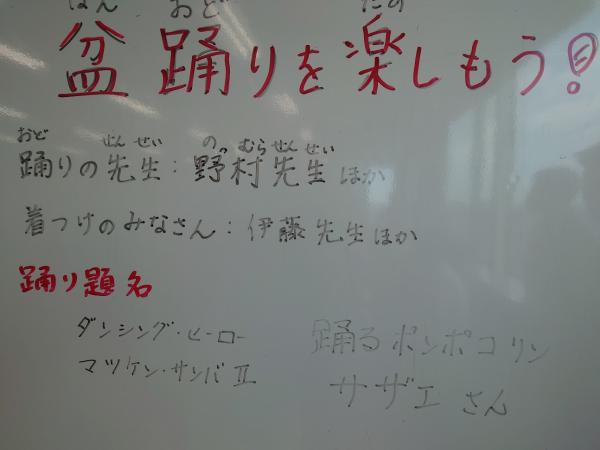 ぼん おど たの
盆 踊りを 楽しもう!
おど せんせい の むらせんせい
踊りの先生:野村先生ほか
着つけのみなさん:伊藤先生ほか
踊り題名
ダンシング・ヒーロー
マツケン・サンバⅡ
踊るポンポコリン
サザエさん